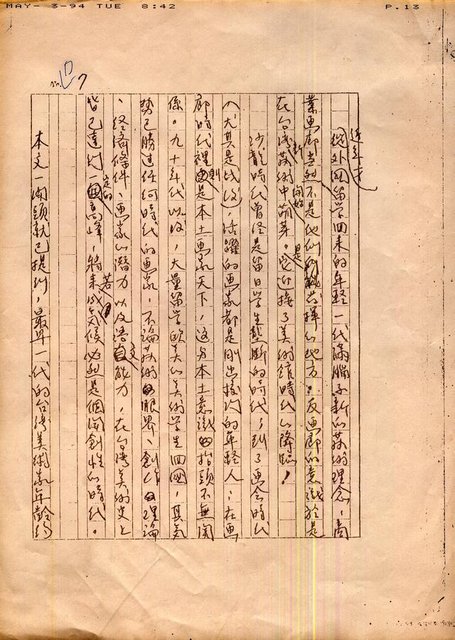 MAY- 3-94 TUE 8:42 P.13
7
近年來
從外國留學回來的年輕一代滿腦子新的藝術理念,商
業畫廊當然不是他們所選擇的地方,反畫廊的意識於是
在台灣藝術中萌芽。它迎接了美術館時代的降臨!
沙龍時代曾經是留日學生墊斷的時代,到了畫會時代
(尤其是戰後),活躍的畫家都是剛出校門的年輕人;在畫
廊時代裡則是本土畫家天下,這與本土意識的抬頭不無關
係。九十年代以後,大量留學歐美的美術學生回國,其氣
勢已勝過任何時代的畫家,不論藝術的眼界、創作的理論
、經濟條件、畫家的潛力以及語文能力,在台灣美術史上
皆已達到一定的高峰,將來若成氣候必然是個開創性的時代。
本文一開頭就已提到,最早一代的台灣美術家年齡約